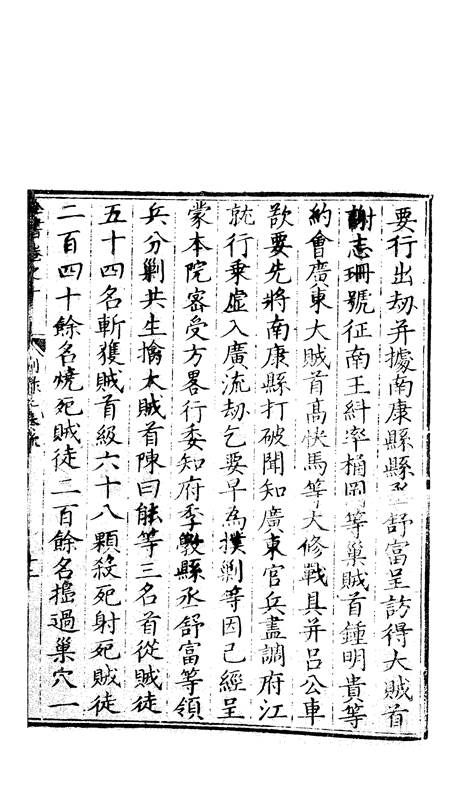 要行出刼并據南康縣縣丞舒富呈訪得大賊首
謝志珊號征南王糾率桶岡等巢賊首鍾明貴等
約會廣東大賊首高快馬等大修戰具并呂公車
欲要先將南康縣打破聞知廣東官兵盡調府江
就行乘虛入廣流刼乞要早為撲剿等因已經呈
蒙本院密受方畧行委知府季斆縣丞舒富等領
兵分剿共生擒大賊首陳曰能等三名首從賊徒
五十四名斬獲賊首級六十八顆殺死射死賊徒
二百四十餘名燒死賊徒二百餘名搗過巢穴一